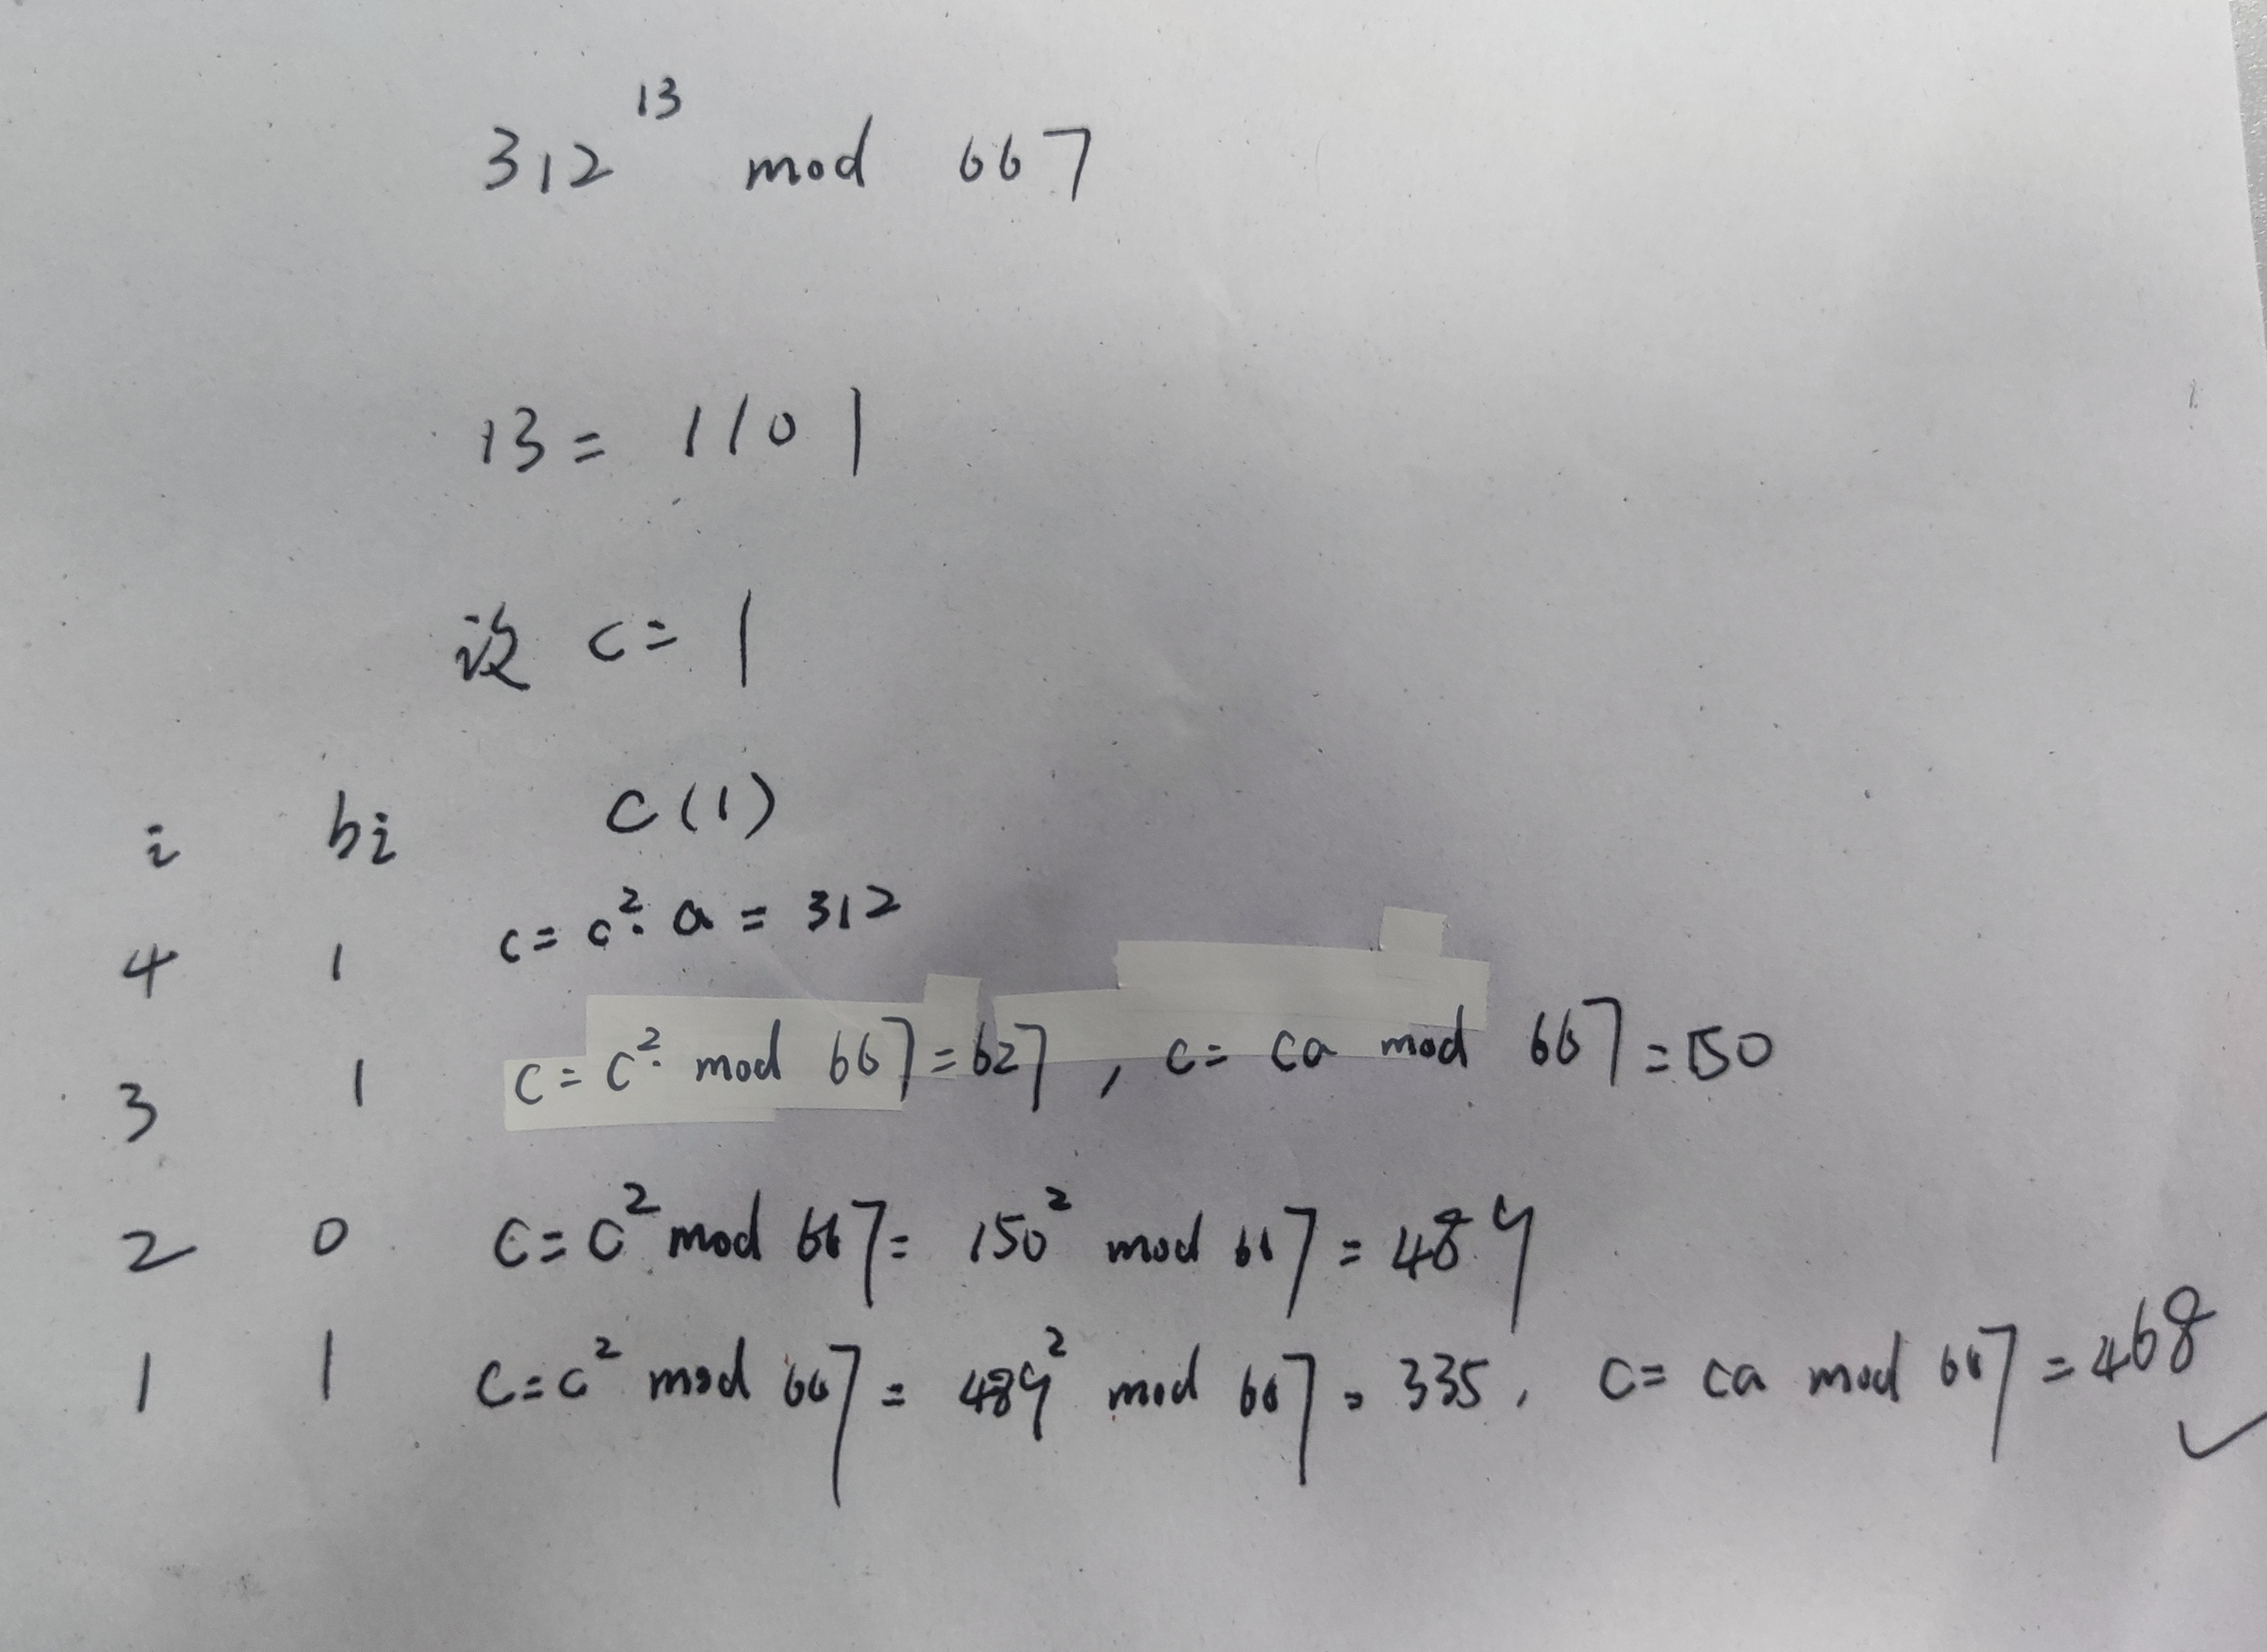 312^13 mod 667
13 = 1101
设 c = 1
i bi C(1)
4 1 c = c². a = 312
3 1 c = c². mod 667 = 627, c = ca mod 667 = 150
2 0 c = c² mod 667 = 150² mod 667 = 489
1 1 c = c² mod 667 = 489² mod 667 = 335, c = ca mod 667 = 468 ✓